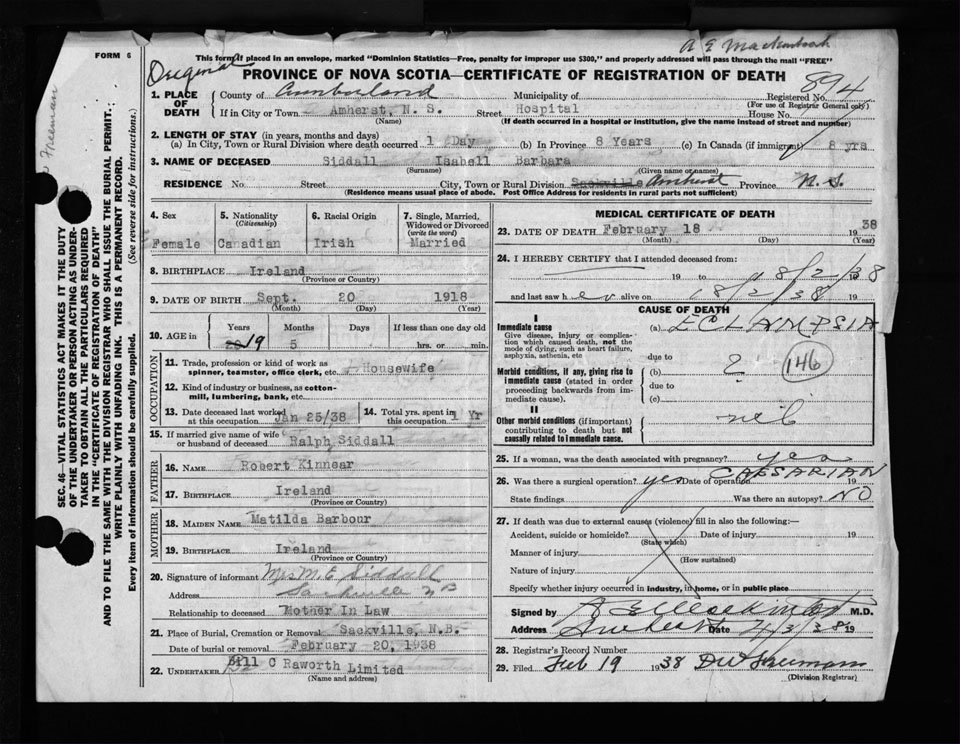 A E Mackintosh
FORM 6
This form if placed in an envelope, marked "Dominion Statistics—Free, penalty for improper use $300," and properly addressed will pass through the mail "FREE"
Original
PROVINCE OF NOVA SCOTIA—CERTIFICATE OF REGISTRATION OF DEATH
894
Freeman
SEC. 46—VITAL STATISTICS ACT MAKES IT THE DUTY
OF THE UNDERTAKER OR PERSON ACTING AS UNDER-
TAKER TO OBTAIN ALL THE PARTICULARS REQUIRED
IN THE "CERTIFICATE OF REGISTRATION OF DEATH"
AND TO FILE THE SAME WITH THE DIVISION REGISTRAR WHO SHALL ISSUE THE BURIAL PERMIT.
WRITE PLAINLY WITH UNFADING INK. THIS IS A PERMANENT RECORD.
Every item of information should be carefully supplied. (See reverse side for instructions.)
1. PLACE OF DEATH
County of Cumberland Municipality of Registered No.
(For use of Registrar General only)
If in City or Town Amherst, N. S. Street Hospital House No.
(Name) (If death occurred in a hospital or institution, give the name instead of street and number)
2. LENGTH OF STAY (in years, months and days)
(a) In City, Town or Rural Division where death occurred 1 Day (b) In Province 8 Years (c) In Canada (if immigrant) 8 yrs
3. NAME OF DECEASED Siddall Isabell Barbara
(Surname) (Given name or names)
RESIDENCE No. Street City, Town or Rural Division Sackville Amherst Province N. S.
(Residence means usual place of abode. Post Office Address for residents in rural parts not sufficient)
4. Sex
Female
5. Nationality
(Citizenship)
Canadian
6. Racial Origin
Irish
7. Single, Married, Widowed or Divorced
(write the word)
Married
8. BIRTHPLACE Ireland
(Province or Country)
9. DATE OF BIRTH Sept. 20 1918
(Month) (Day) (Year)
10. AGE in
Years Months Days If less than one day old
19 5 hrs. or min.
OCCUPATION
11. Trade, profession or kind of work as
spinner, teamster, office clerk, etc. Housewife
12. Kind of industry or business, as cotton-
mill, lumbering, bank, etc.
13. Date deceased last worked at this occupation Jan 25/38
14. Total yrs. spent in this occupation 1 Yr
15. If married give name of wife or husband of deceased Ralph Siddall
FATHER
16. NAME Robert Kinnear
17. BIRTHPLACE Ireland
(Province or Country)
MOTHER
18. MAIDEN NAME Matilda Barbour
19. BIRTHPLACE Ireland
(Province or Country)
20. Signature of informant Mrs M. E Siddall
Address Sackville N B
Relationship to deceased Mother In Law
21. Place of Burial, Cremation or Removal Sackville, N.B.
Date of burial or removal February 20, 1938
22. UNDERTAKER Bill C Raworth Limited
(Name and address)
MEDICAL CERTIFICATE OF DEATH
23. DATE OF DEATH February 18 1938
(Month) (Day) (Year)
24. I HEREBY CERTIFY that I attended deceased from:
19 to 18/2/38
and last saw her alive on 18/2/38 19
CAUSE OF DEATH
I
Immediate cause
Give disease, injury or complica-
tion which caused death, not the
mode of dying, such as heart failure,
asphyxia, asthenia, etc
(a) ECLAMPSIA
due to
Morbid conditions, if any, giving rise to
immediate cause (stated in order
proceeding backwards from im-
mediate cause).
(b) ?
146
due to
(c)
II
Other morbid conditions (if important)
contributing to death but not
causally related to immediate cause.
neil
25. If a woman, was the death associated with pregnancy? yes
26. Was there a surgical operation? yes Date of operation CAESARIAN 19
State findings Was there an autopsy? NO
27. If death was due to external causes (violence) fill in also the following:—
Accident, suicide or homicide? Date of injury 19
(State which)
Manner of injury
(How sustained)
Nature of injury
Specify whether injury occurred in industry, in home, or in public place
Signed by A E Mackintosh M.D.
Address Amherst Date 4/3/38 19
28. Registrar's Record Number
29. Filed Feb 19 1938
(Division Registrar)